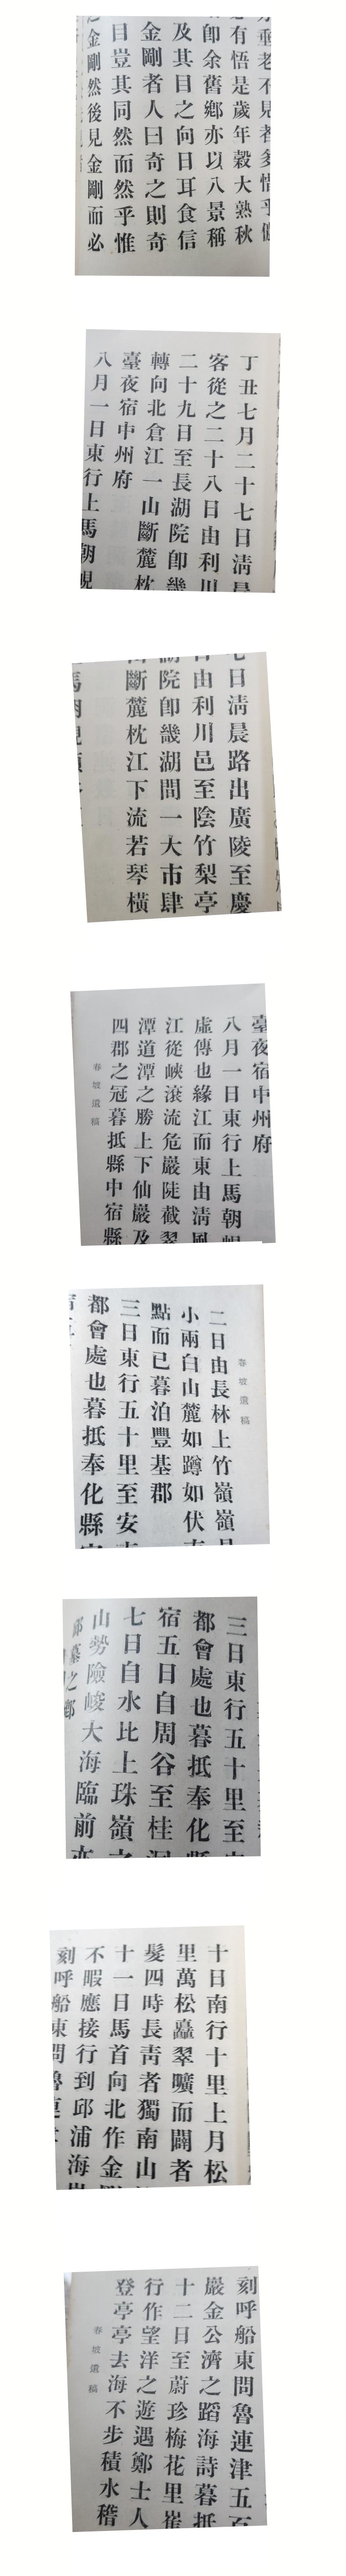 垂老不見者多惜乎
有悟是歲年穀大熟秋
卽余舊鄕亦以八景稱
及其目之向日耳食信
金剛者人曰奇之則奇
目豈其同然而然乎惟
金剛然後見金剛而必
丁丑七月二十七日淸晨
客從之二十八日由利川
二十九日至長湖院卽畿
轉向北倉江一山斷麓枕
臺夜宿中州府
八月一日東行上馬朝睍
七日淸晨路出廣陵至慶
日由利川邑至陰竹梨亭
湖院卽畿湖間一大市肆
斷麓枕江下流若琴橫
馬朝睍
臺夜宿中州府
八月一日東行上馬朝睍
虛傳也緣江而東由淸風
江從峽滾流危巖陡截翠
潭道潭之勝上下仙巖及
四郡之冠暮抵縣中宿縣
春坡遺稿
春坡遺稿
二日由長林上竹嶺嶺
小兩白山麓如蹲如伏
點而已暮泊豐基郡
三日東行五十里至安
都會處也暮抵奉化縣
三日東行五十里至安
都會處也暮抵奉化縣
宿五日自周谷至桂洞
七日自水比上珠嶺之
山勢險峻大海臨前亦
鄕墓之鄕
十日南行十里上月松
里萬松矗翠曠而闢者
髮四時長靑者獨南山
十一日馬首向北作金剛
不暇應接行到邱浦海
刻呼船東問魯連
刻呼船東問魯連津五百
巖金公濟之蹈海詩暮抵
十二日至蔚珍梅花里崔
行作望洋之遊遇鄭士人
登亭亭去海不步積水稽
春坡遺稿